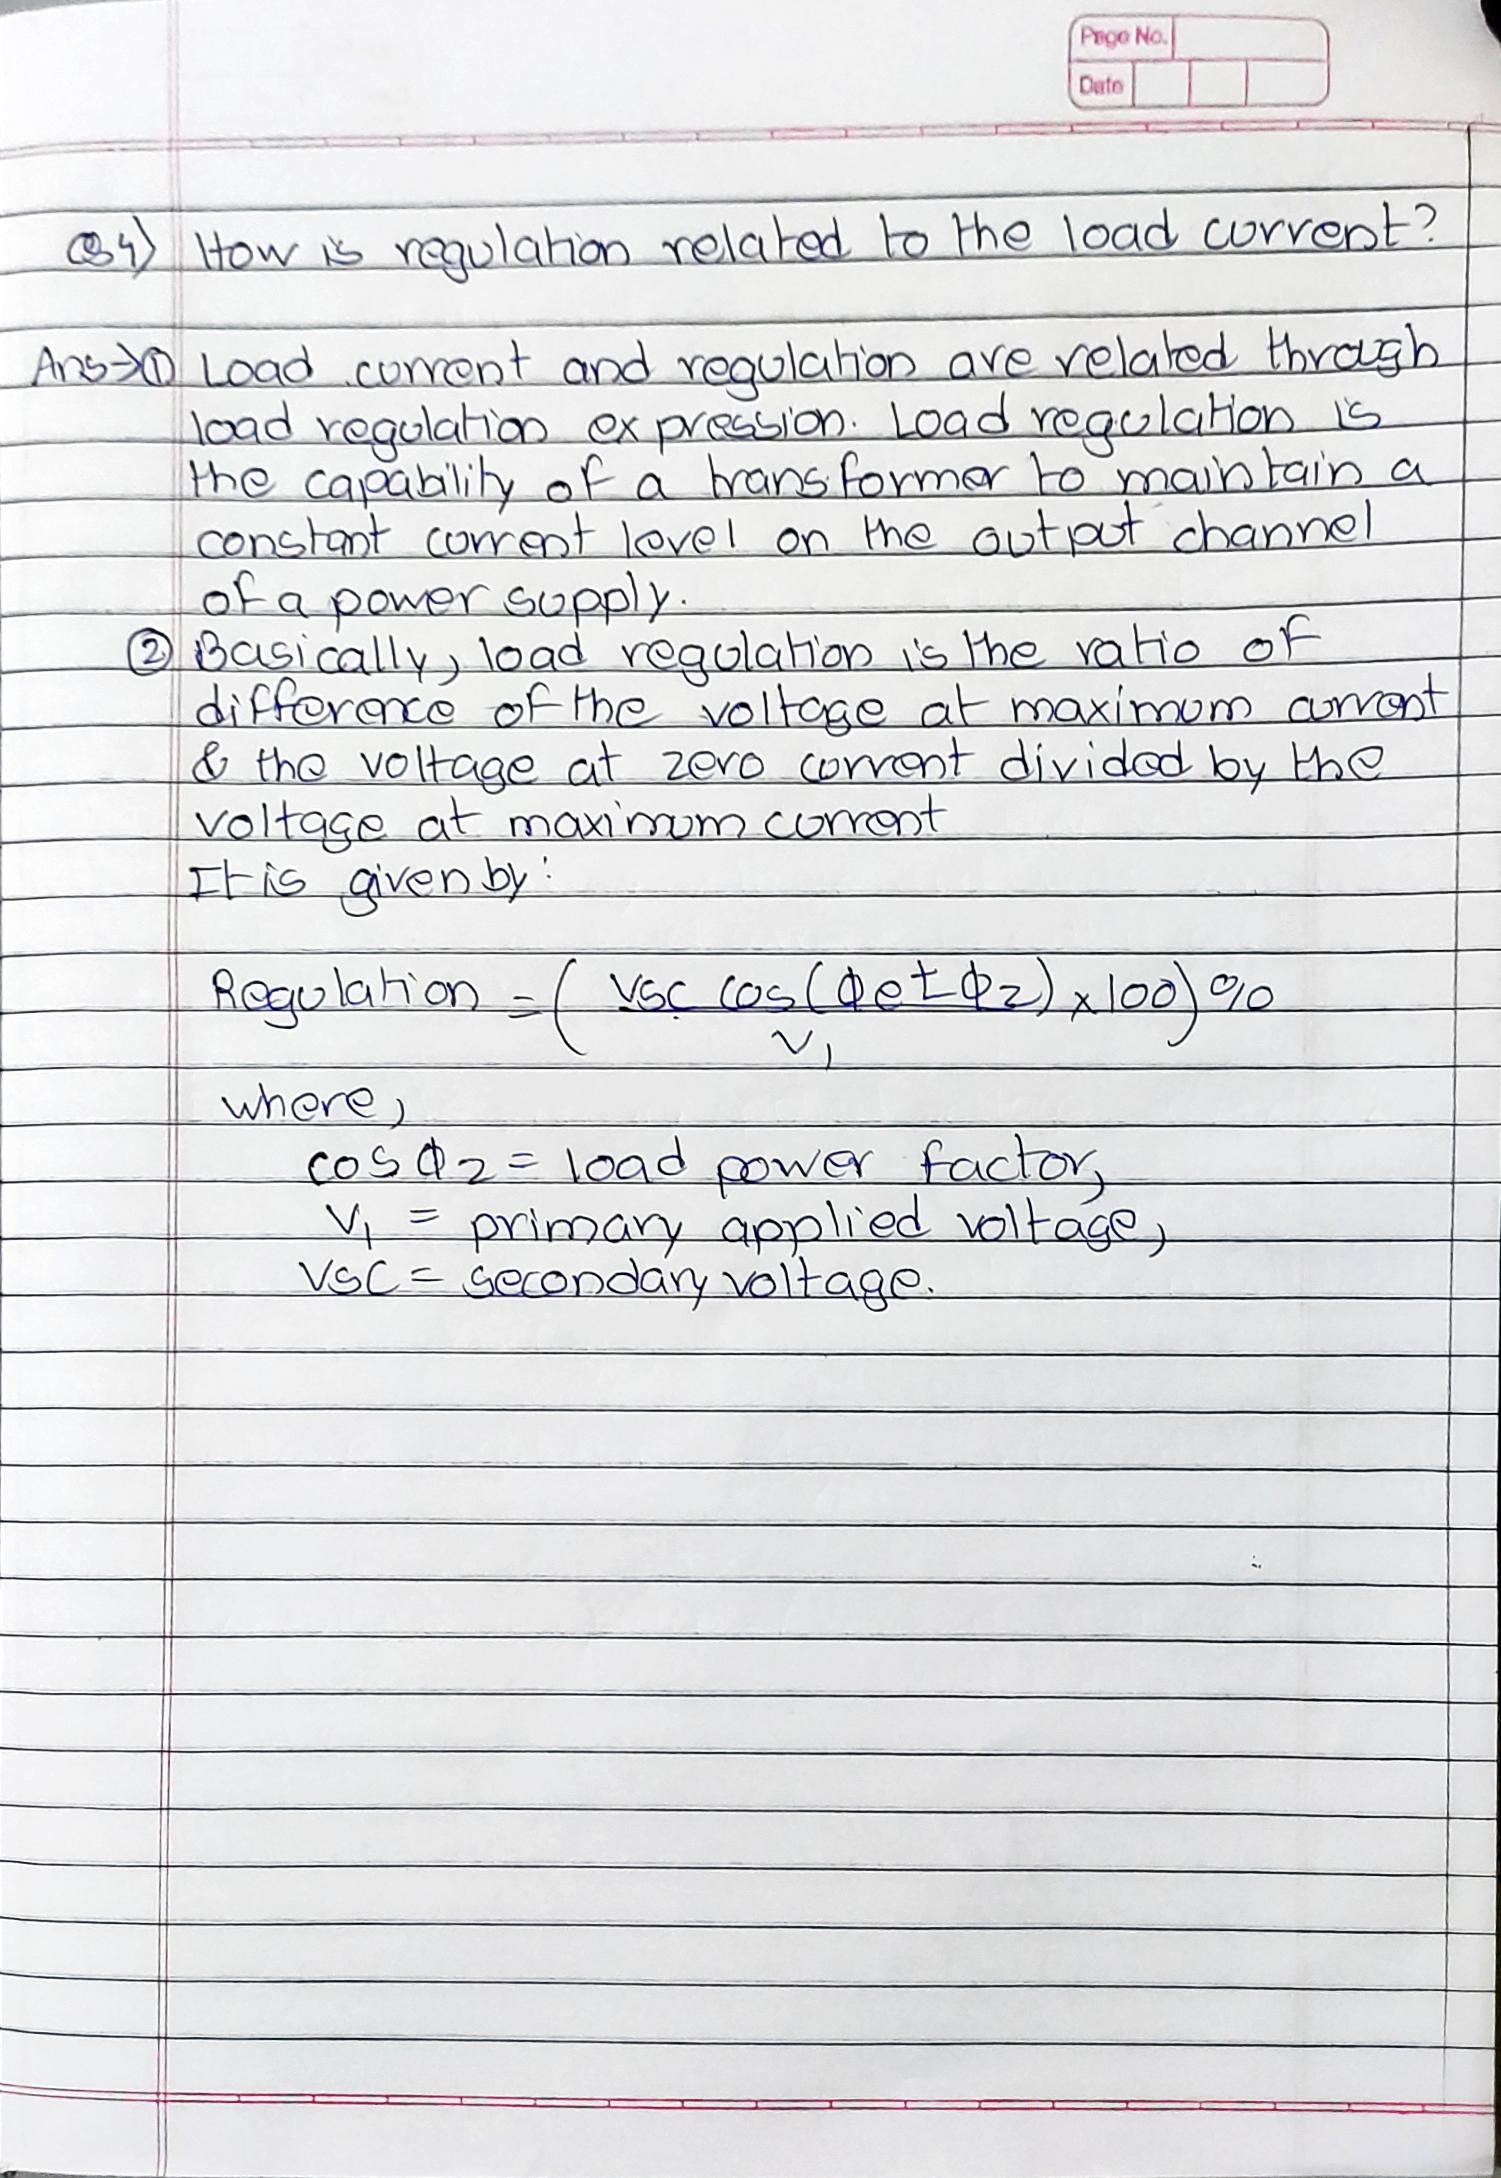 Page No.
Date
Q4) How is regulation related to the load current?
Ans→① Load current and regulation are related through
load regulation expression. Load regulation is
the capability of a transformer to maintain a
constant current level on the output channel
of a power supply.
② Basically, load regulation is the ratio of
difference of the voltage at maximum current
& the voltage at zero current divided by the
voltage at maximum current
It is given by:
Regulation = ( Vsc cos(ϕe ± ϕ2) × 100) %
V1
where,
cos ϕ2 = load power factor,
V1 = primary applied voltage,
VSC = secondary voltage.